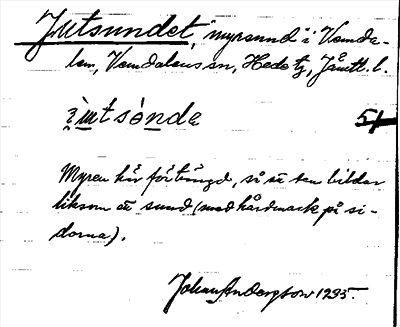 Jutsundet, myrsund i Vemda-
len, Vemdalens sn, Hede tg, Jämtl. l.
51
Myren här förträngd, så att den bildar
liksom ett sund (med hårdmark på si-
dorna).
Johan Anderztson 1935.